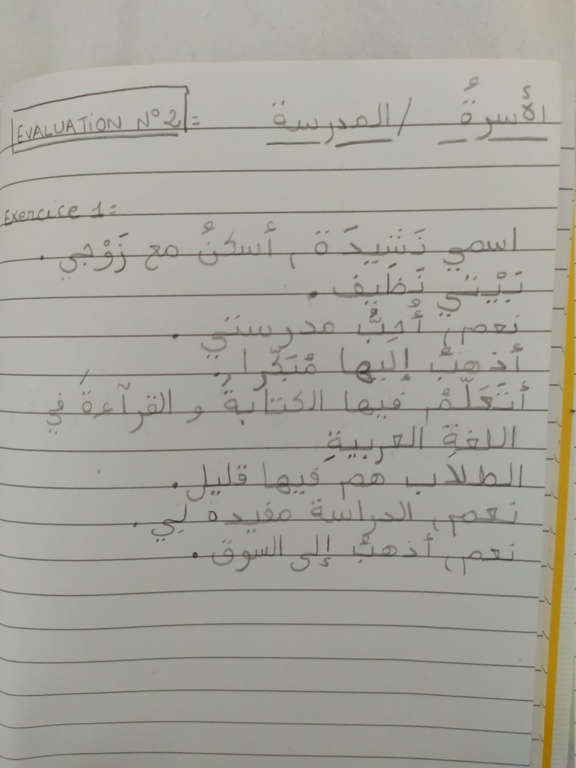 EVALUATION N°2 : الأسرةُ / المدرسة
Exercice 1:
اسمي نَشِيدَة , أسكنُ مع زَوْجِي .
بَيْتي نَظَيف .
نعم, أُحِبُّ مدرستي .
أذهبُ إليها مُبَكِّرا .
أتَعَلَّمُ فيها الكتابةَ و القرآءةَ في
اللغةِ العربيةِ
الطلاب هم فيها قليل .
نعم, الدراسة مفيده لي .
نعم, أذهبُ إلى السوق .